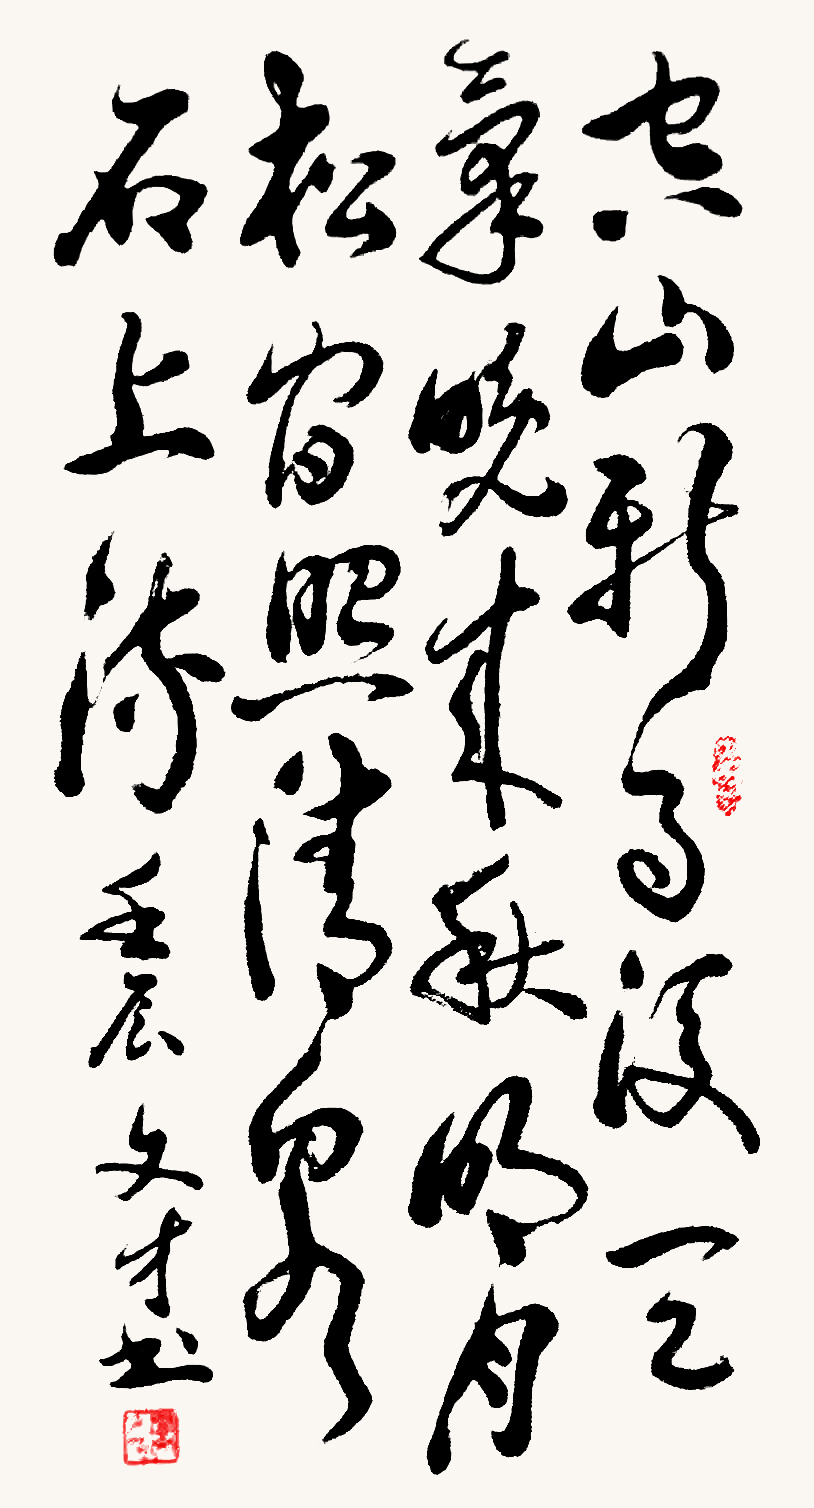 空山新雨後天
氣晚來秋明月
松間照清泉
石上流壬辰文才书